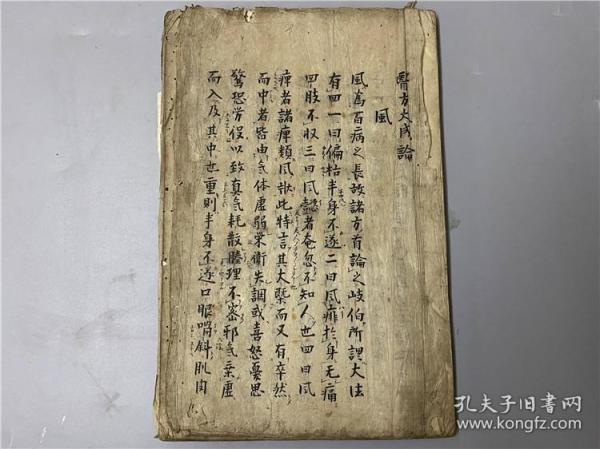 醫方大成論
風
風爲百病之長故諸方首論之岐伯所謂大法
有四一曰偏枯半身不遂二曰風痱於身无痛
四肢不収三曰風懿者奄忽不知人也四曰風
痺者諸痺類風狀此特言其大槩而又有卒然
而中者皆由氣体虛弱栄衛失調或喜怒憂思
驚恐労役以致真氣耗散腠理不密邪氣乗虛
而入及其中也重則半身不遂口眼喎斜肌肉
孔夫子旧书网
www.kongfz.com